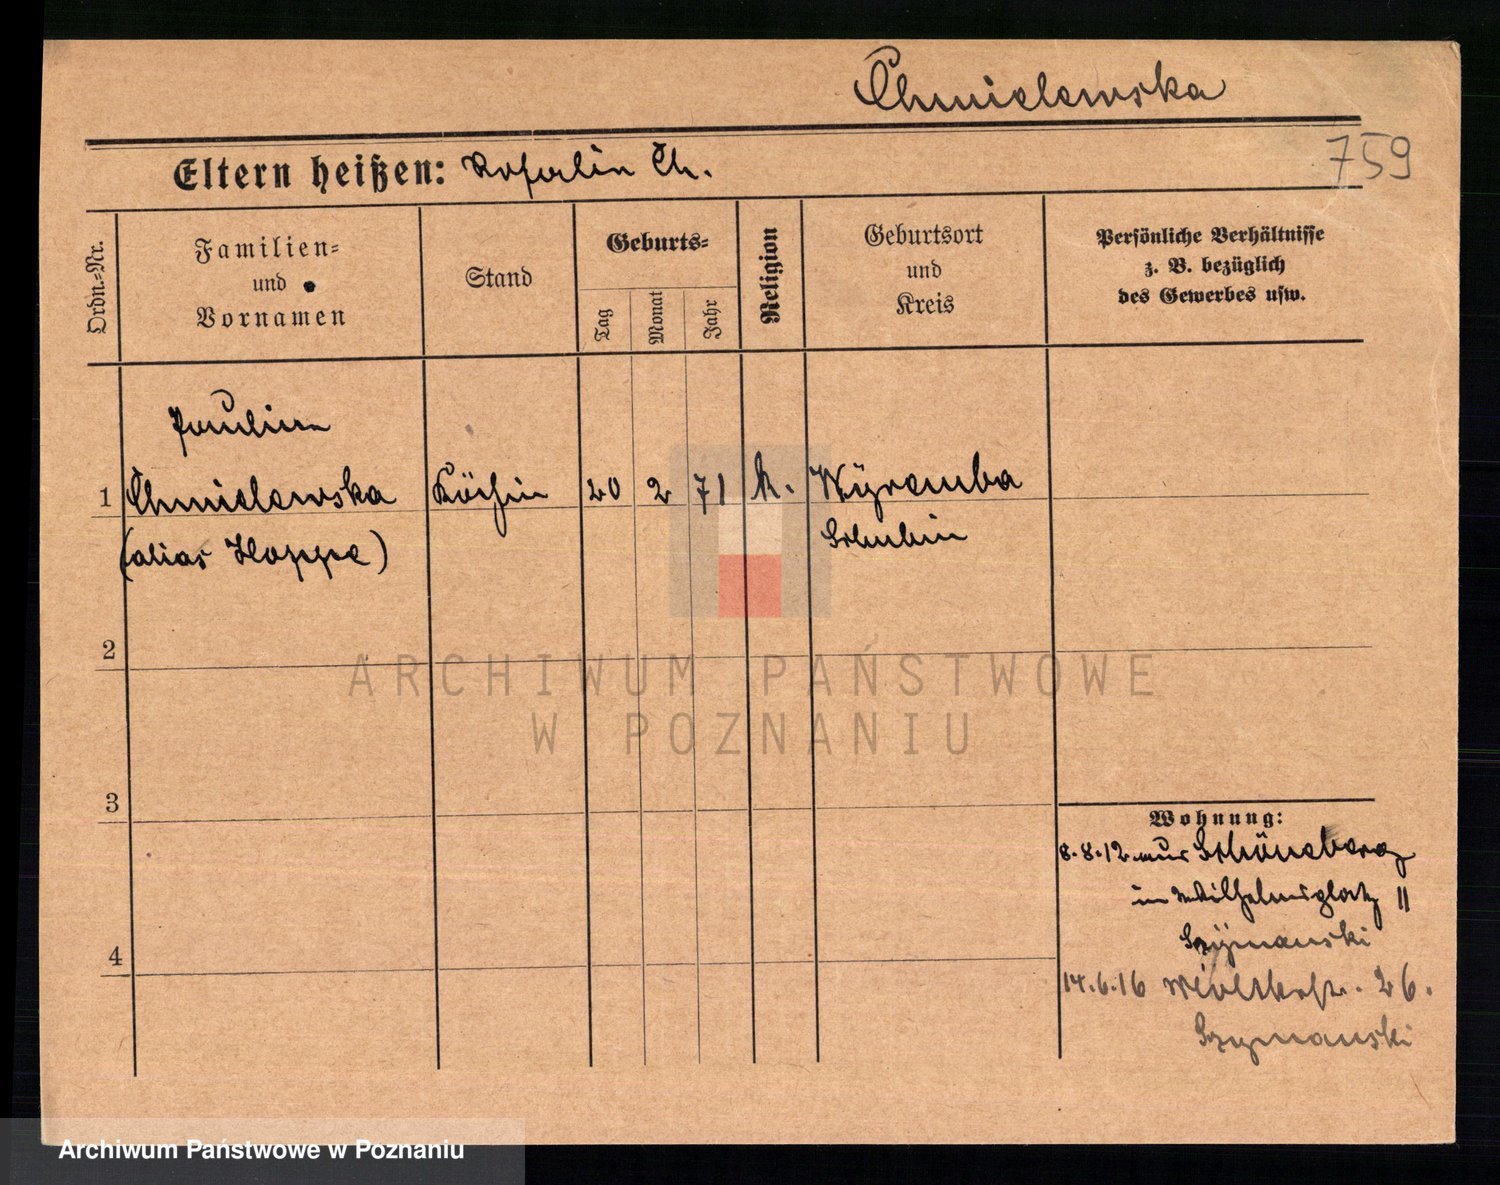 Chmielewska
759
Eltern heißen: Rosalie Ch.
Ordn.-Nr.
Familien-
und
Vornamen
Stand
Geburts-
Tag
Monat
Jahr
Religion
Geburtsort
und
Kreis
Persönliche Verhältnisse
z. B. bezüglich
des Gewerbes usw.
Pauline
1 Chmielewska Köchin 20 2 71 k. Wyremba
(alias Hoppe) Schubin
2
ARCHIWUM PAŃSTWOWE
W POZNANIU
3
Wohnung:
8.8.12. aus Schöneberg
in Wilhelmsplatz 11
Szymanski
4
14.6.16 26.
Szymanski
Archiwum Państwowe w Poznaniu